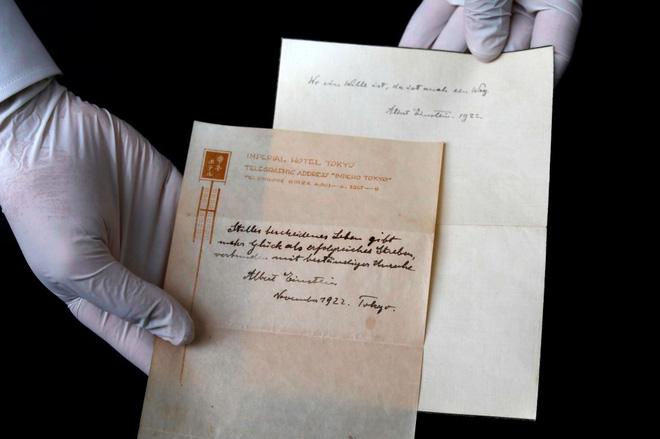 Wo ein Wille ist, da ist auch ein Weg.
Albert Einstein. 1922.
帝国
ホテル
IMPERIAL HOTEL TOKYO
TELEGRAPHIC ADDRESS "IMPEHO TOKYO"
TELEPHONE GINZA
Stilles bescheidenes Leben gibt
mehr Glück als erfolgreiches Streben,
verbunden mit beständiger Unruhe.
Albert Einstein.
November 1922. Tokyo.